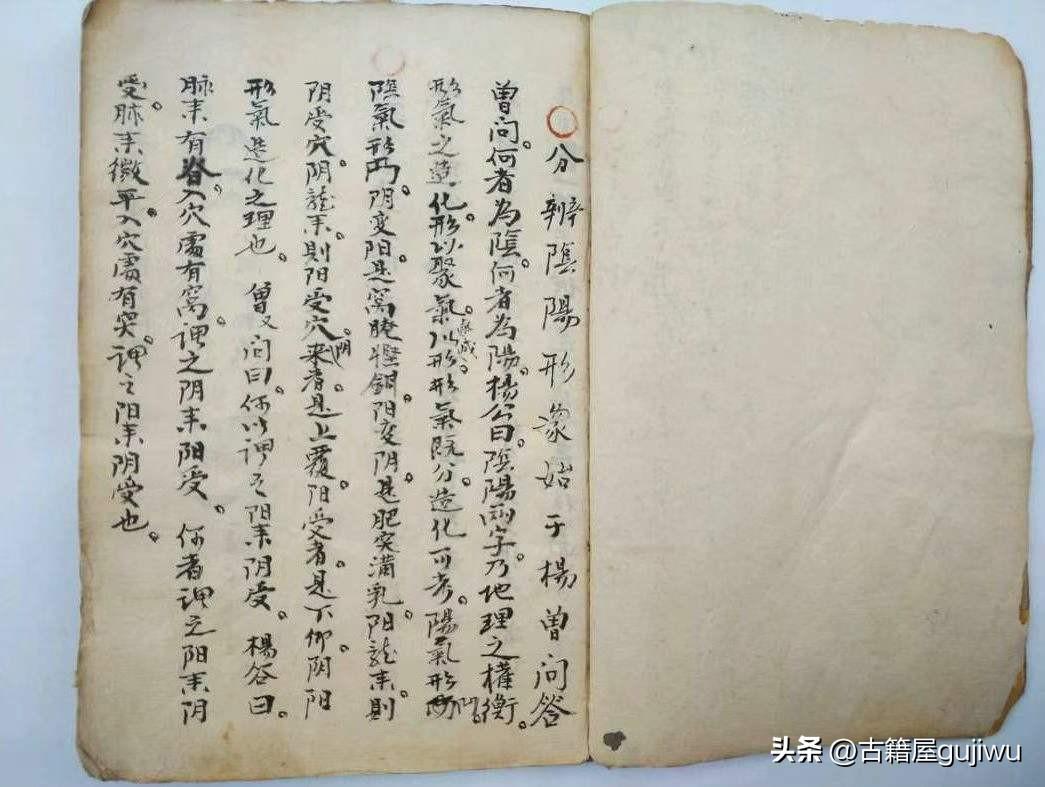 ○分辨陰陽形象始于楊曾問答
曾问。何者為陰。何者為陽。楊公曰。陰陽兩字。乃地理之權衡。
形氣之造化。形以聚氣。氣以成形。形氣既分。造化可考。陽氣形
陰氣形凸。阴变阳。是窩
阴受穴。阴龍来。則阳受穴。阴来者。是上覆。阳受者。是下仰。阴阳
形氣造化之理也。曾又问曰。何以謂之阳来阴受。楊答曰。
脉来有脊。入穴處有窩。謂之阴来阳受。何者謂之阳来阴
受。脉来微平。入穴處有突。謂之阳来阴受也。
头条 @古籍屋gujiwu